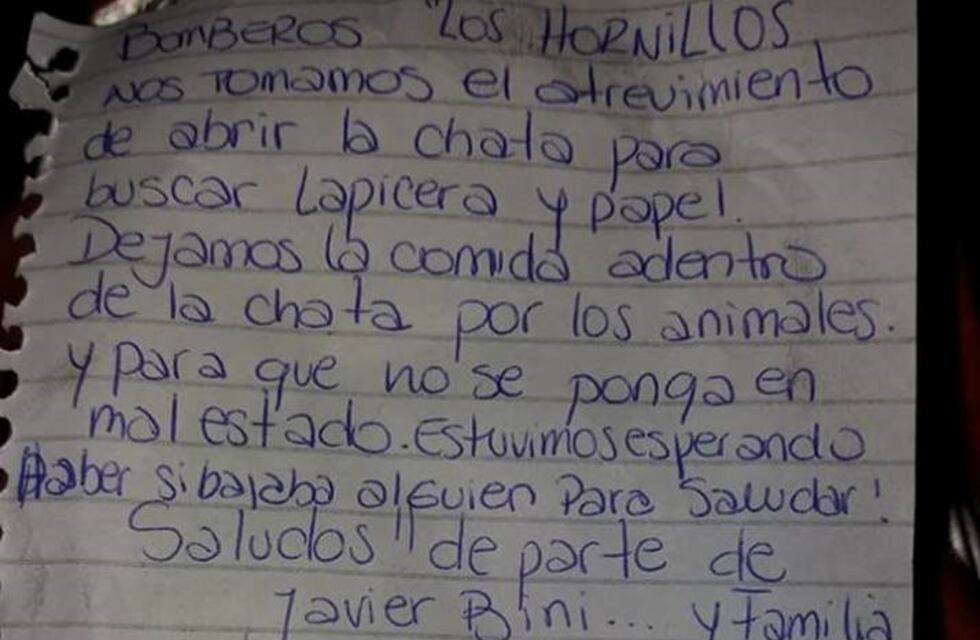 BOMBEROS "LOS HORNILLOS
NOS TOMAMOS el atrevimiento
de abrir la chata para
buscar Lapicera y papel.
Dejamos la comida adentro
de la chata por los animales.
y para que no se ponga en
mal estado. Estuvimos esperando
Haber si bajaba alguien Para Saludar!
Saludos" de parte de
Javier Bini... y familia